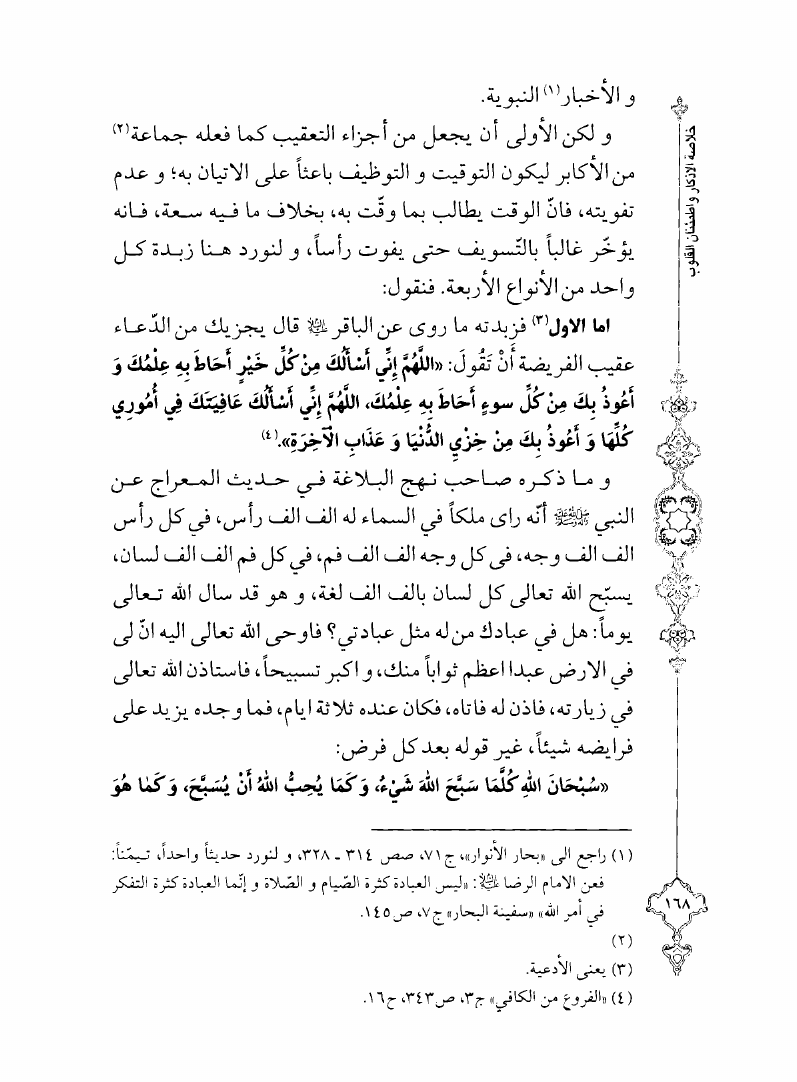 و الأخبار(١) النبوية.
و لكن الأولى أن يجعل من أجزاء التعقيب كما فعله جماعة(٢)
من الأكابر ليكون التوقيت و التوظيف باعثاً على الاتيان به؛ و عدم
تفويته، فانّ الوقت يطالب بما وقّت به، بخلاف ما فيه سعة، فانه
يؤخّر غالباً بالتّسويف حتى يفوت رأساً، و لنورد هنا زبدة كل
واحد من الأنواع الأربعة. فنقول:
اما الاول(٣) فزبدته ما روى عن الباقر عليه السلام قال يجزيك من الدّعاء
عقيب الفريضة أَنْ تَقُولَ: «اللَّهُمَّ إِنِّي أَسْأَلُكَ مِنْ كُلِّ خَيْرٍ أَحَاطَ بِهِ عِلْمُكَ وَ
أَعُوذُ بِكَ مِنْ كُلِّ سوءٍ أَحَاطَ بِهِ عِلْمُكَ، اللَّهُمَّ إِنِّي أَسْأَلُكَ عَافِيَتَكَ فِي أُمُورِي
كُلِّهَا وَ أَعُوذُ بِكَ مِنْ خِزْيِ الدُّنْيَا وَ عَذَابِ الْآخِرَةِ».(٤)
و ما ذكره صاحب نهج البلاغة في حديث المعراج عن
النبي ﷺ أنّه راى ملكاً في السماء له الف الف رأس، في كل رأس
الف الف وجه، فى كل وجه الف الف فم، في كل فم الف الف لسان،
يسبّح الله تعالى كل لسان بالف الف لغة، و هو قد سال الله تعالى
يوماً: هل في عبادك من له مثل عبادتي؟ فاوحى الله تعالى اليه انّ لى
في الارض عبدا اعظم ثواباً منك، و اكبر تسبيحاً، فاستاذن الله تعالى
في زيارته، فاذن له فاتاه، فكان عنده ثلاثة ايام، فما وجده يزيد على
فرايضه شيئاً، غير قوله بعد كل فرض:
«سُبْحَانَ اللهِ كُلَّمَا سَبَّحَ اللهَ شَيْءٌ، وَ كَمَا يُحِبُّ اللهُ أَنْ يُسَبَّحَ، وَ كَمَا هُوَ
(١) راجع الى «بحار الأنوار»، ج٧١، صص ٣١٤ ـ ٣٢٨، و لنورد حديثاً واحداً، تيمّناً:
فعن الامام الرضا عليه السلام: «ليس العبادة كثرة الصّيام و الصّلاة و إنّما العبادة كثرة التفكر
في أمر الله» «سفينة البحار» ج٧، ص١٤٥.
(٢)
(٣) يعنى الأدعية.
(٤) «الفروع من الكافي» ج٣، ص٣٤٣، ح١٦.
خلاصة الاذكار و اطمئنان القلوب
١٦٨